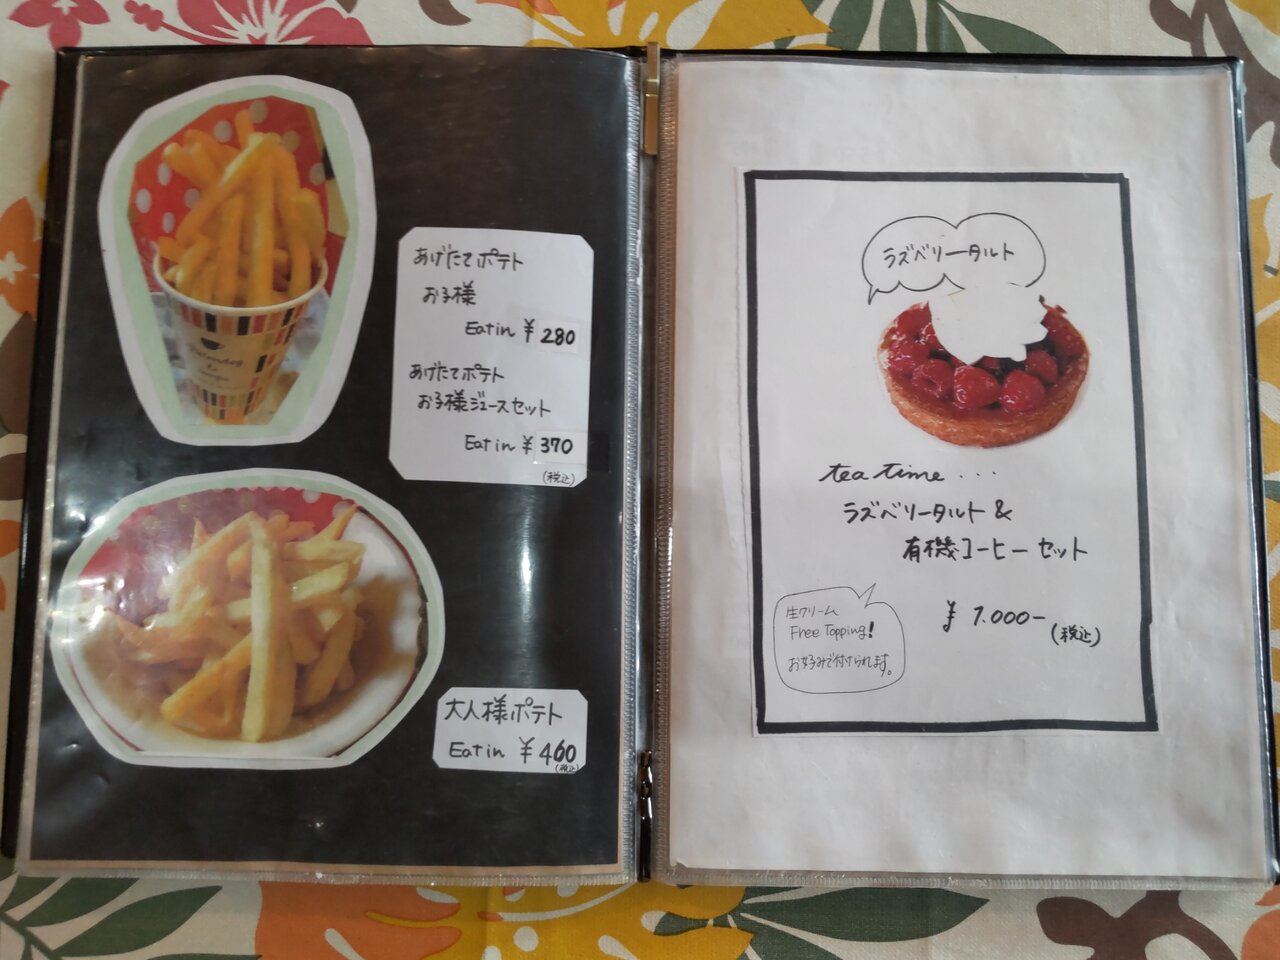 あげたてポテト
お子様
Eat in ¥280
あげたてポテト
お子様ジュースセット
Eat in ¥370
(税込)
大人様ポテト
Eat in ¥460
(税込)
ラズベリータルト
tea time...
ラズベリータルト&
有機コーヒーセット
¥1.000-
(税込)
生クリーム
Free Topping!
お好みで付けられます。